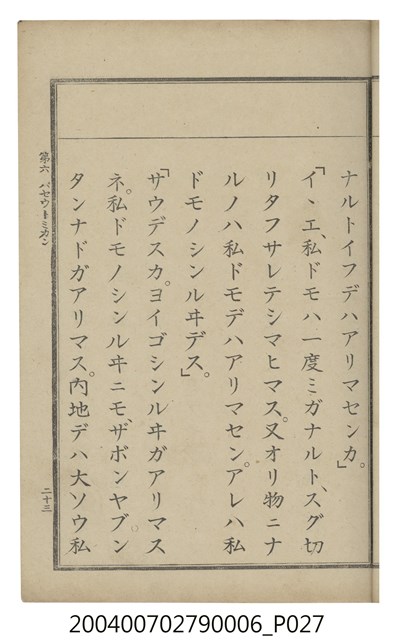 ナルトイフデハアリマセンカ。」
「イヽエ、私ドモハ一度ミガナルト、スグ切
リタフサレテシマヒマス。又オリ物ニナ
ルノハ私ドモデハアリマセン。アレハ私
ドモノシンルヰデス。」
「サウデスカ。ヨイゴシンルヰガアリマス
ネ。私ドモノシンルヰニモ、ザボンヤブン
タンナドガアリマス。內地デハ大ソウ私
第六 バセウトミカン
二十三
200400702790006_P027